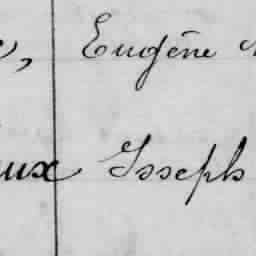 , Eugène
ux Joseph